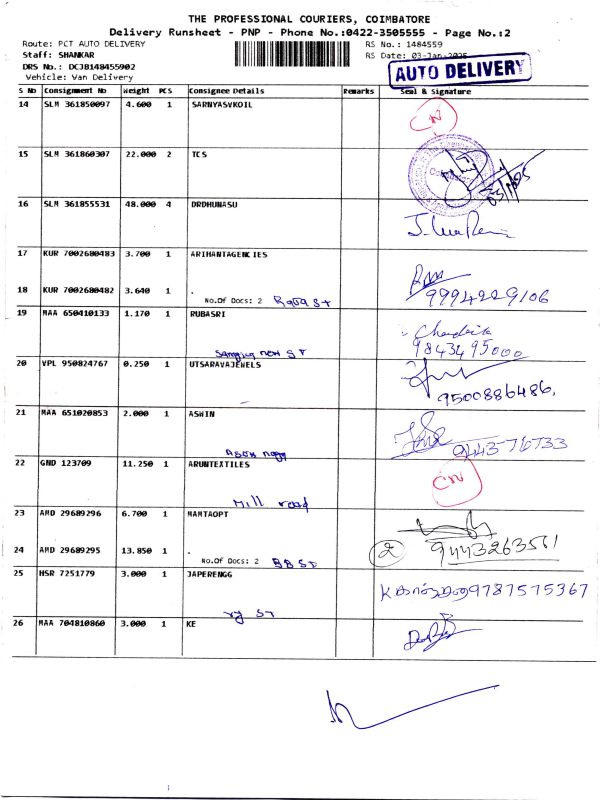 THE PROFESSIONAL COURIERS, COIMBATORE
Delivery Runsheet - PNP - Phone No.:0422-3505555 - Page No.:2
Route: PCT AUTO DELIVERY RS No.: 1484559
Staff: SHANKAR RS Date: 03-Jan-2025
DRS No.: DCJB148455902
Vehicle: Van Delivery
AUTO DELIVERY
S No Consignment No Weight PCS Consignee Details Remarks Seal & Signature
14 SLM 361850097 4.600 1 SARNYASVKOIL CN
15 SLM 361860307 22.000 2 TCS
16 SLM 361855531 48.000 4 DRDHUNASU
17 KUR 7002680483 3.700 1 ARIHANTAGENCIES
18 KUR 7002680482 3.640 1 .
No.Of Docs: 2 Raja St 9994229106
19 MAA 650410133 1.170 1 RUBASRI
9843495000
new ST
20 VPL 950824767 0.250 1 UTSARAVAJEWELS
9500886486.
21 MAA 651020853 2.000 1 ASHIN
9443576733
22 GND 123709 11.250 1 ARUNTEXTILES CN
Mill road
23 AMD 29689296 6.700 1 MAMTAOPT
24 AMD 29689295 13.850 1 .
2 9443263561
No.Of Docs: 2 BB ST
25 HSR 7251779 3.000 1 JAPERENGG 9787575367
ST
26 MAA 704810860 3.000 1 KE